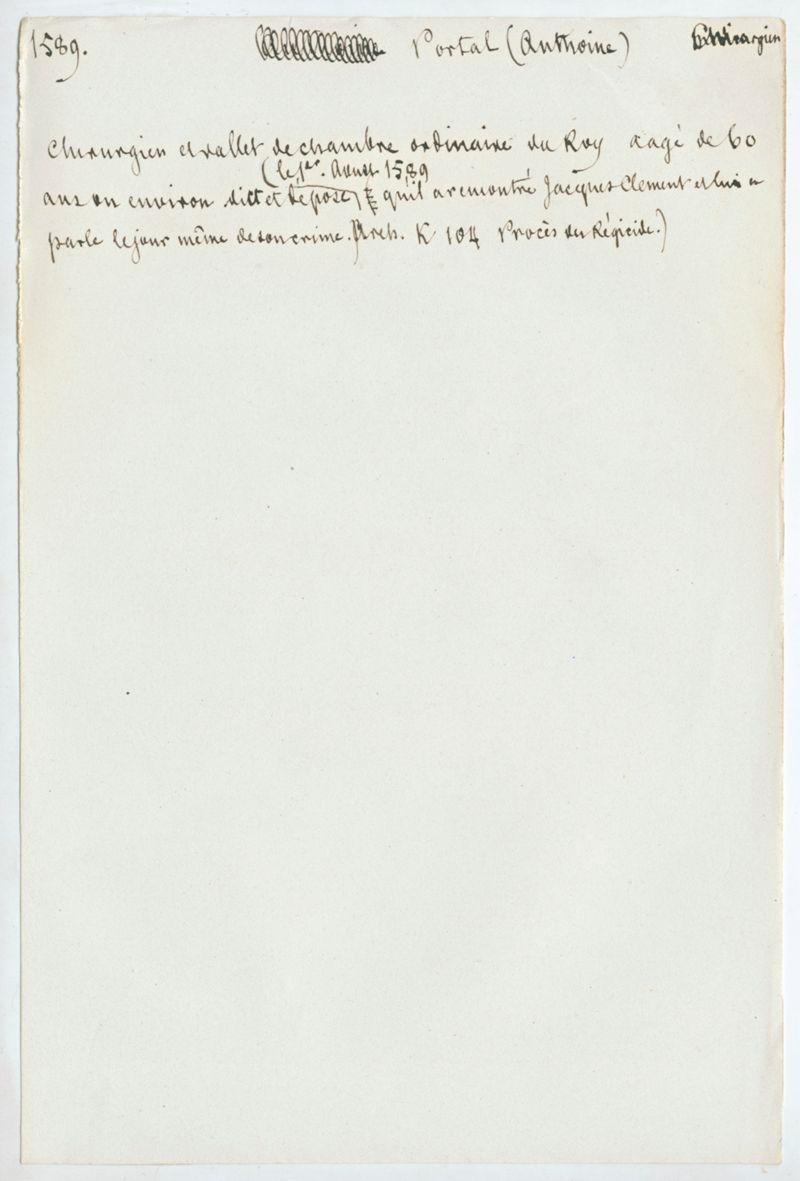 1589. Portal (Anthoine) Chirurgien
Chirurgien et vallet de chambre ordinaire du Roy agé de 60
(le 1er. Aoust 1589
ans ou environ dict et depose) qu'il a remontré Jacques Clement et lui a
parlé le jour même de son crime. (Arch. K 104 Procès du Régicide.)